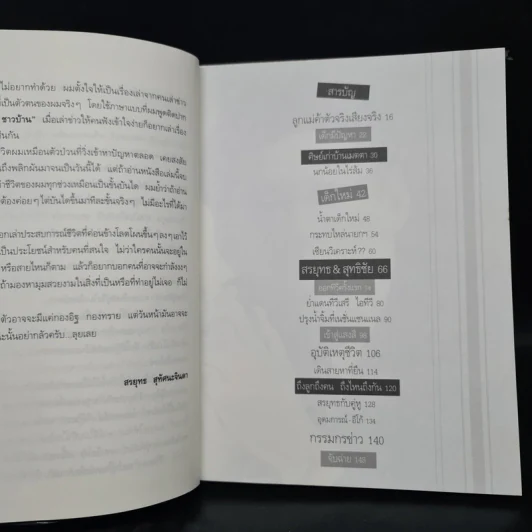 ไม่อยากทำด้วย ผมตั้งใจให้เป็นเรื่องเล่าจากคนเล่าข่าว
ที่เป็นตัวตนของผมจริงๆ โดยใช้ภาษาแบบที่ผมพูดติดปาก
ชาวบ้าน" เมื่อเล่าข่าวให้คนฟังเข้าใจง่ายก็อยากเล่าเรื่อง
กัน
ชีวิตผมเหมือนตัวป่วนที่วิ่งเข้าหาปัญหาตลอด เคยสงสัย
พลิกผันมาจนเป็นวันนี้ได้ แต่ถ้าอ่านหนังสือเล่มนี้จะ
ชีวิตของผมทุกช่วงเหมือนเป็นขั้นบันได ผมย้ำว่าถ้าอ่าน
ต้องค่อยๆ ไต่บันไดขึ้นมาทีละขั้นจริงๆ ไม่มีอะไรที่ได้มา
เล่าประสบการณ์ชีวิตที่ค่อนข้างโลดโผนขึ้นๆ ลงๆ เอาไว้
เป็นประโยชน์สำหรับคนที่สนใจ ไม่ว่าใครคนนั้นจะอยู่ใน
หรือสายไหนก็ตาม แล้วก็อยากบอกคนที่อาจจะกำลัง
ถ้ามองหามุมสวยงามในสิ่งที่เป็นหรือที่ทำอยู่ไม่เจอ ก็ไม่
ตัวอาจจะมีแค่กองอิฐ กองทราย แต่วันหน้ามันอาจจะ
นั้นอย่ากลัวครับ...ลุยเลย
สรยุทธ สุทัศนะจินดา
สารบัญ
ลูกแม่ค้าตัวจริงเสียงจริง 16
เด็กมีปัญหา
ศิษย์เก่าบ้านเมตตา
นกน้อยในไร่ส้ม 36
เด็กใหม่ 42
น้ำตาเด็กใหม่ 48
กระทบไหล่นายกฯ 54
เซียนวิเคราะห์?? 60
สรยุทธ & สุทธิชัย 66
ย่ำแดนทีวีเสรี ไอทีวี 80
ปรุงน้ำจิ้มที่เนชั่นแชนแนล 90
เข้าสู่แสงสี
อุบัติเหตุชีวิต 106
เดินสายหาที่ยืน 114
ถึงลูกถึงคน ถึงไหนถึงกัน 120
สรยุทธกับคู่หู 128
อุดมการณ์-อีโก้ 134
กรรมกรข่าว 140
จับฉ่าย